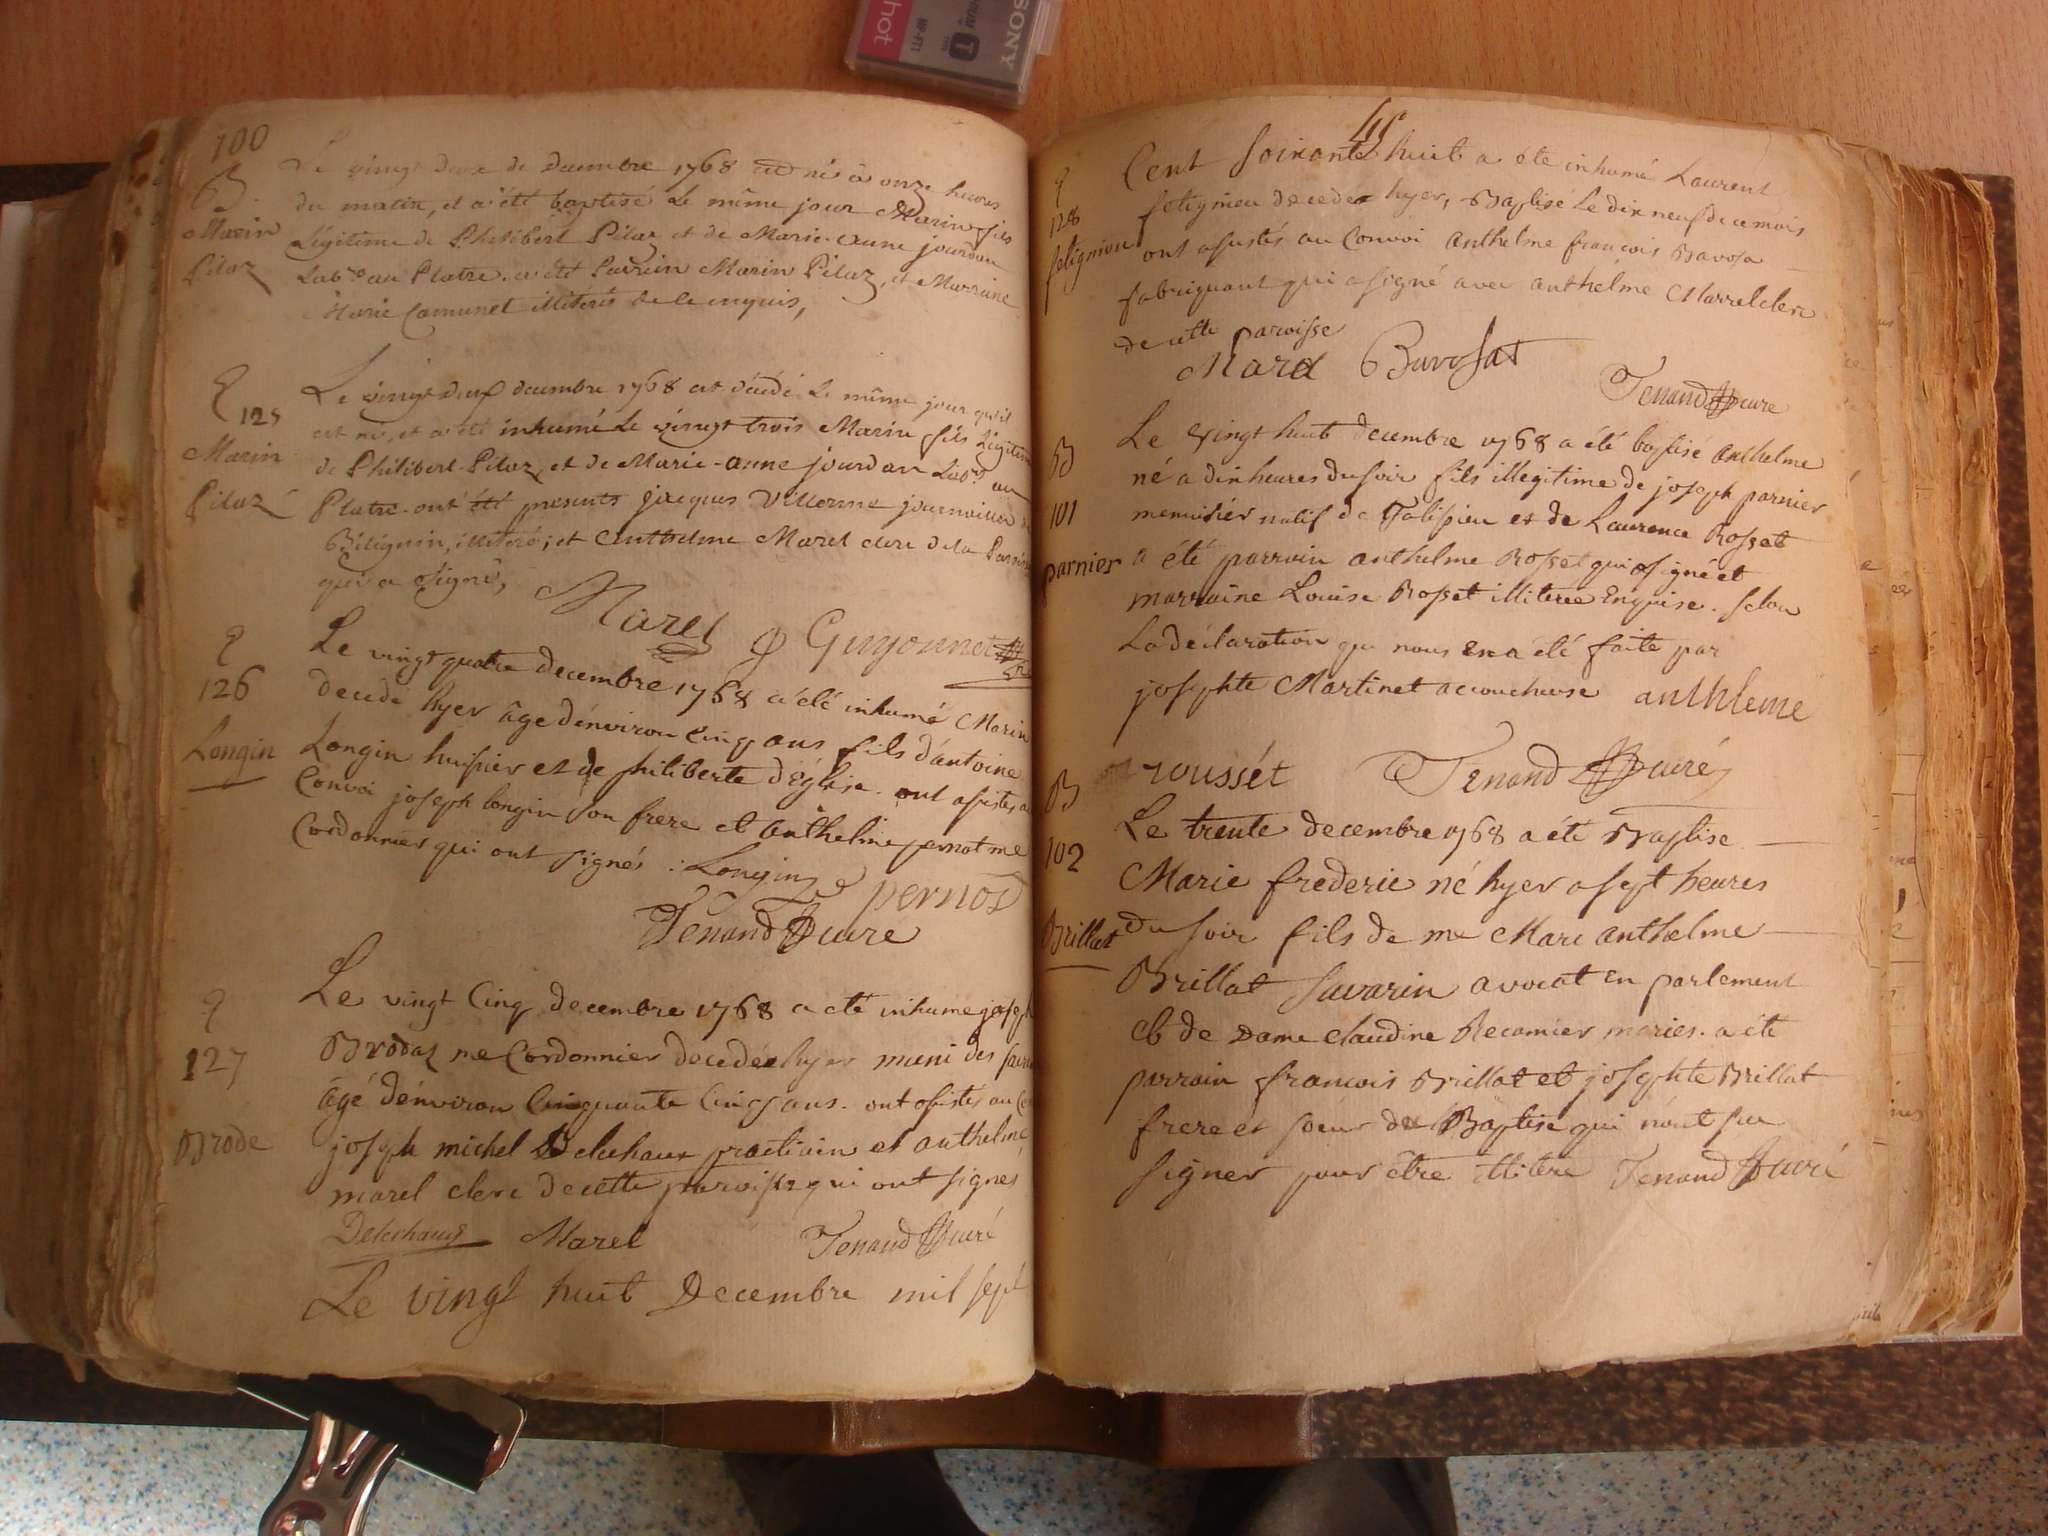 100
B.
Marin
Pilaz
Le vingt deux de decembre 1768 est né à onze heures
du matin, et a été baptisé le même jour Marin fils
légitime de Philibert Pilaz et de Marie-anne jourdan
Lab.r au Platre. a été Parrain Marin Pilaz, et Marraine
Marie Camunet illiterés de ce enquis,
125
Marin
Pilaz
Le vingt deux decembre 1768 est décédé le même jour qu'il
est né, et a été inhumé le vingt trois Marin fils légitime
de Philibert Pilaz et de Marie-anne jourdan Lab.r au
Platre. ont été presents jacques Villerme journalier
Billignin, illiteré; et Anthelme Marel clerc de la Paroisse
qui a signé,
Marel Guyonnet
126
Longin
Le vingt quatre decembre 1768 a été inhumé Marin
decedé hyer âge d'énviron cinq ans fils d'antoine
Longin huissier et de philiberte d'Église. ont assistes au
Convoi joseph longin son frere et anthelme pernot me
Cordonnier qui ont signés : Longin pernot
Tenand Curé
127
Brode
Le vingt Cinq decembre 1768 a eté inhume joseph
Brodaz me Cordonnier decedée hyer muni des
âgé d'énviron Cinquante Cinq ans. ont assistes au
joseph michel Delechaux practicien et anthelme
marel clerc de cette paroisse qui ont signés
Delechaux Marel Tenand Curé
Le vingt huit Decembre mil sept
128
felignieu
Cent soixante huit a été inhumé Laurent
felignieu decedé hyer, Baptisé le dix neuf de ce mois
ont assistés au Convoi anthelme françois Bavosa
fabriquant qui a signé avec anthelme Marrel clerc
de cette paroisse
Marel Bavosat
Tenand Curé
B
101
parnier
Le vingt huit decembre 1768 a été baptisé anthelme
né a dix heures du soir fils illegitime de joseph parnier
menuisier natif de Talissieu et de Laurence Rosset
a été parrain anthelme Rosset qui a signé et
marraine Louise Rosset illiteree Enquise. selon
La déclaration qui nous en a été faite par
josephte Martinet accoucheuse anthleme
roussét Tenand Curé
B
102
Brillat
Le trente decembre 1768 a été Baptise
Marie frederic né hyer a sept heures
du soir fils de me Marc anthelme
Brillat Savarin avocat en parlement
et de Dame claudine Recamier maries. a été
parrain francois Brillat et josephte Brillat
frere et soeur du Baptise qui n'ont su
signer pour être illitere Tenand Curé
SONY